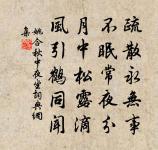 疏散永無事
不眠常夜分
月中松露滴
風引鶴同聞
姚合秋中夜坐詞典網
集